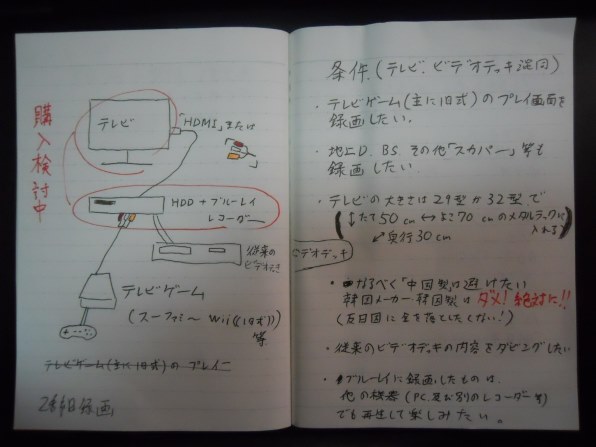 購入検討中
テレビ
「HDMI」または
HDD+ブルーレイ
レコーダー
従来の
ビデオデッキ
テレビゲーム
(スーファミ〜Wii((旧式))
等
テレビゲーム(主に旧式)のプレイ
2番組録画
条件(テレビ、ビデオデッキ混同)
・テレビゲーム(主に旧式)のプレイ画面を
録画したい。
・地上D、BS、その他「スカパー」等も
録画したい
・テレビの大きさは29型か32型で
(↕たて50cm ↔よこ70cmのメタルラックに
入れる)
↙奥行30cm
ビデオデッキ
・なるべく「中国製」は避けたい
韓国メーカー、韓国製はダメ!絶対に!!
(反日国に金を落としたくない!)
・従来のビデオデッキの内容をダビングしたい
・ブルーレイに録画したものは、
他の機器(PC、及び別のレコーダー等)
でも再生して楽しみたい。